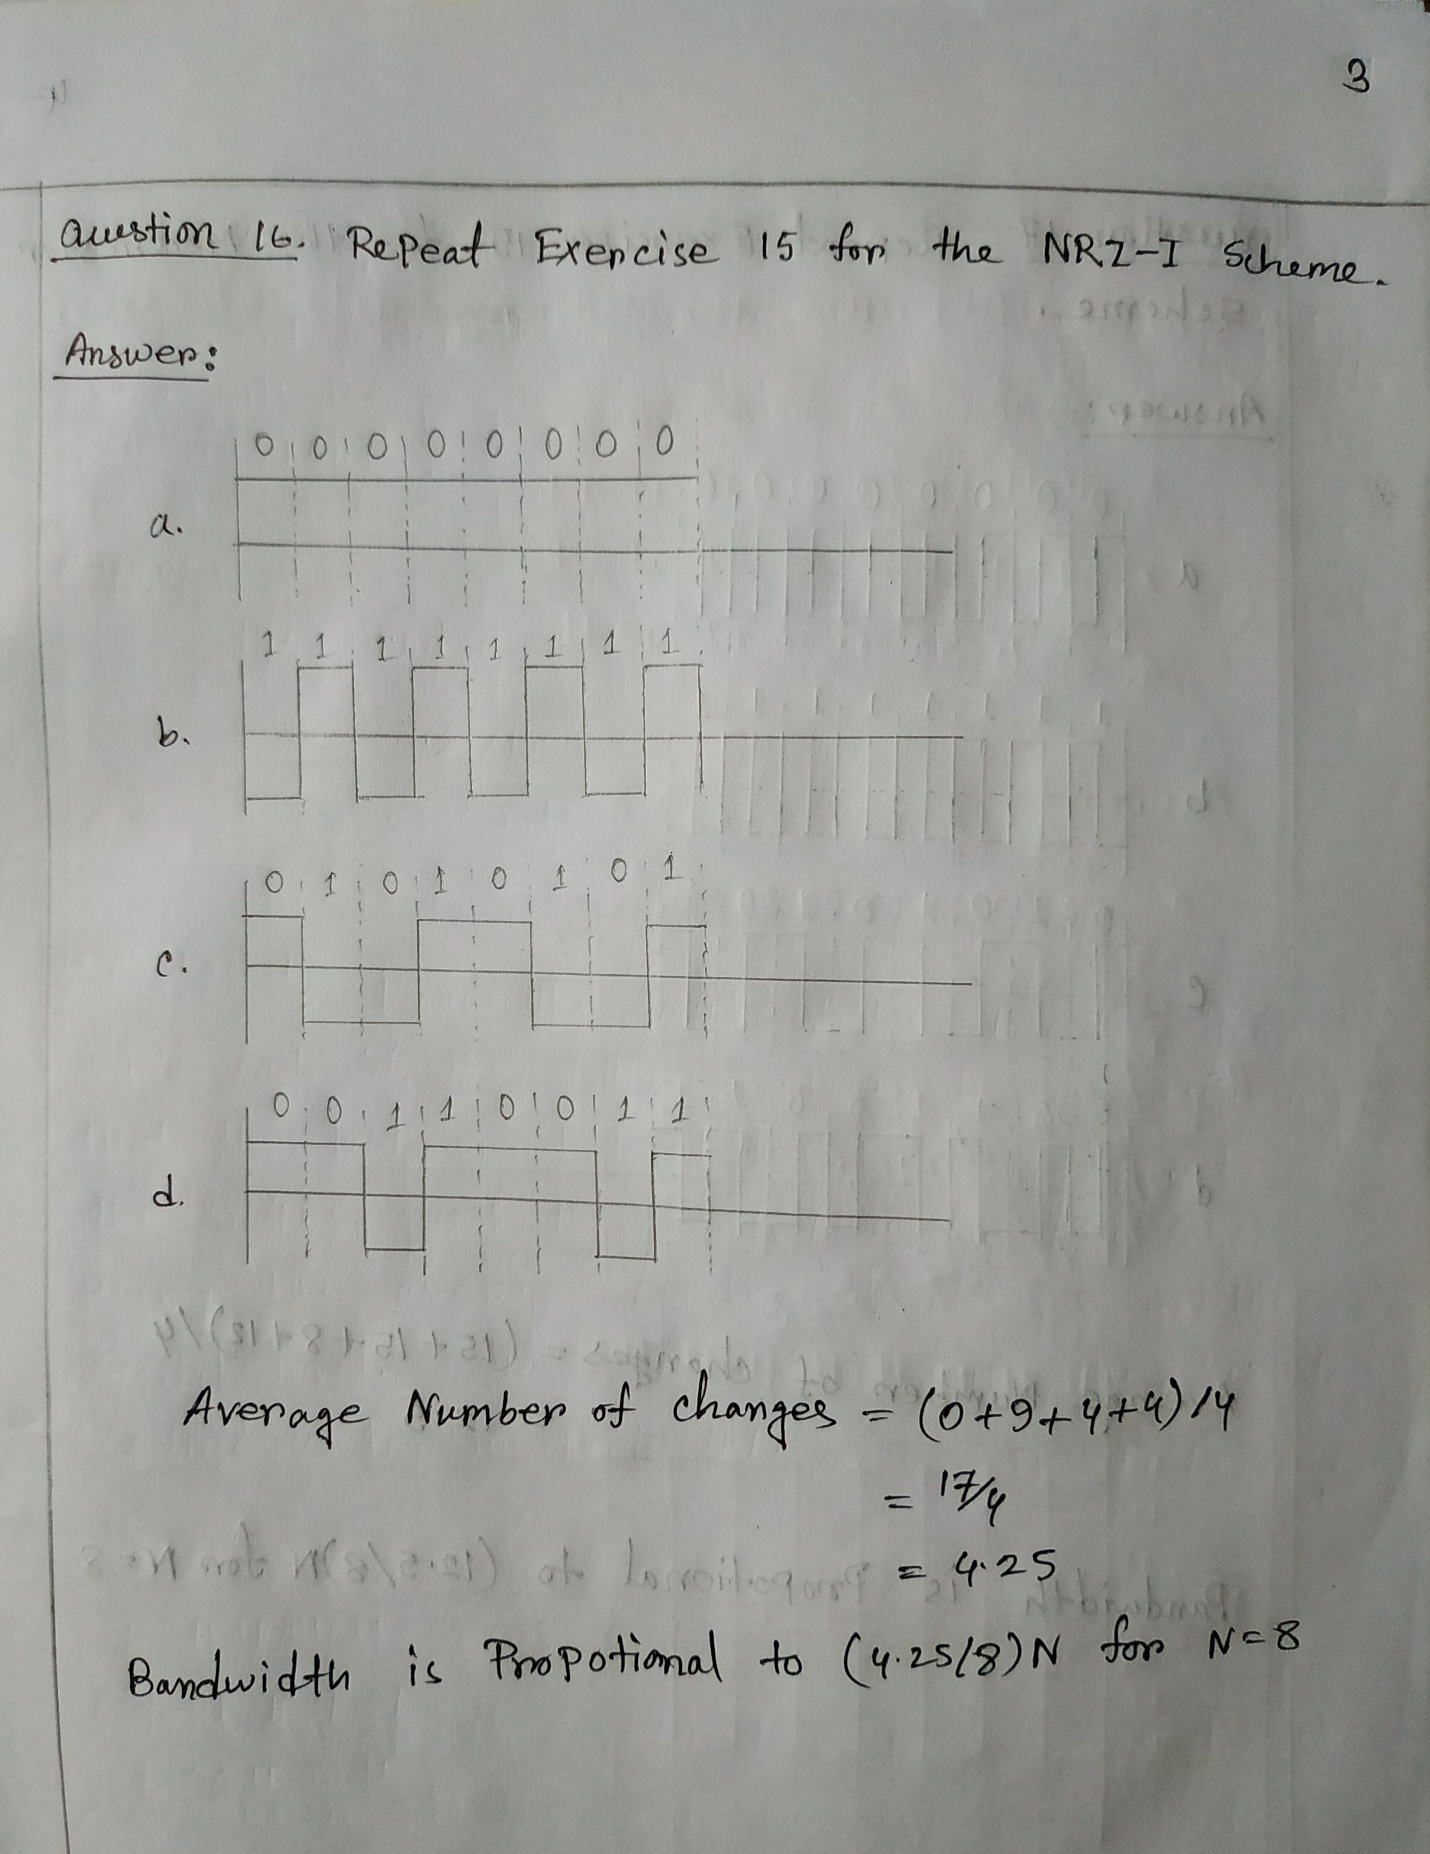 3
Question 16. Repeat Exercise 15 for the NRZ-I Scheme.
Answer:
0 0 0 0 0 0 0 0
a.
1 1 1 1 1 1 1 1
b.
0 1 0 1 0 1 0 1
c.
0 0 1 1 0 0 1 1
d.
Average Number of changes = (0+9+4+4)/4
= 17/4
= 4.25
Bandwidth is Propotional to (4.25/8)N for N=8